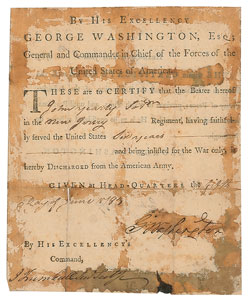 By His EXCELLENCY
GEORGE WASHINGTON, Esq;
General and Commander in Chief of the Forces of the
United States of America.
THESE are to CERTIFY that the Bearer hereof
in the New Jersey Regiment, having faithful-
ly served the United States
and being inlisted for the War only, is
hereby DISCHARGED from the American Army.
GIVEN at HEAD-QUARTERS the
Day of June 1783
G Washington
By HIS EXCELLENCY'S
Command,